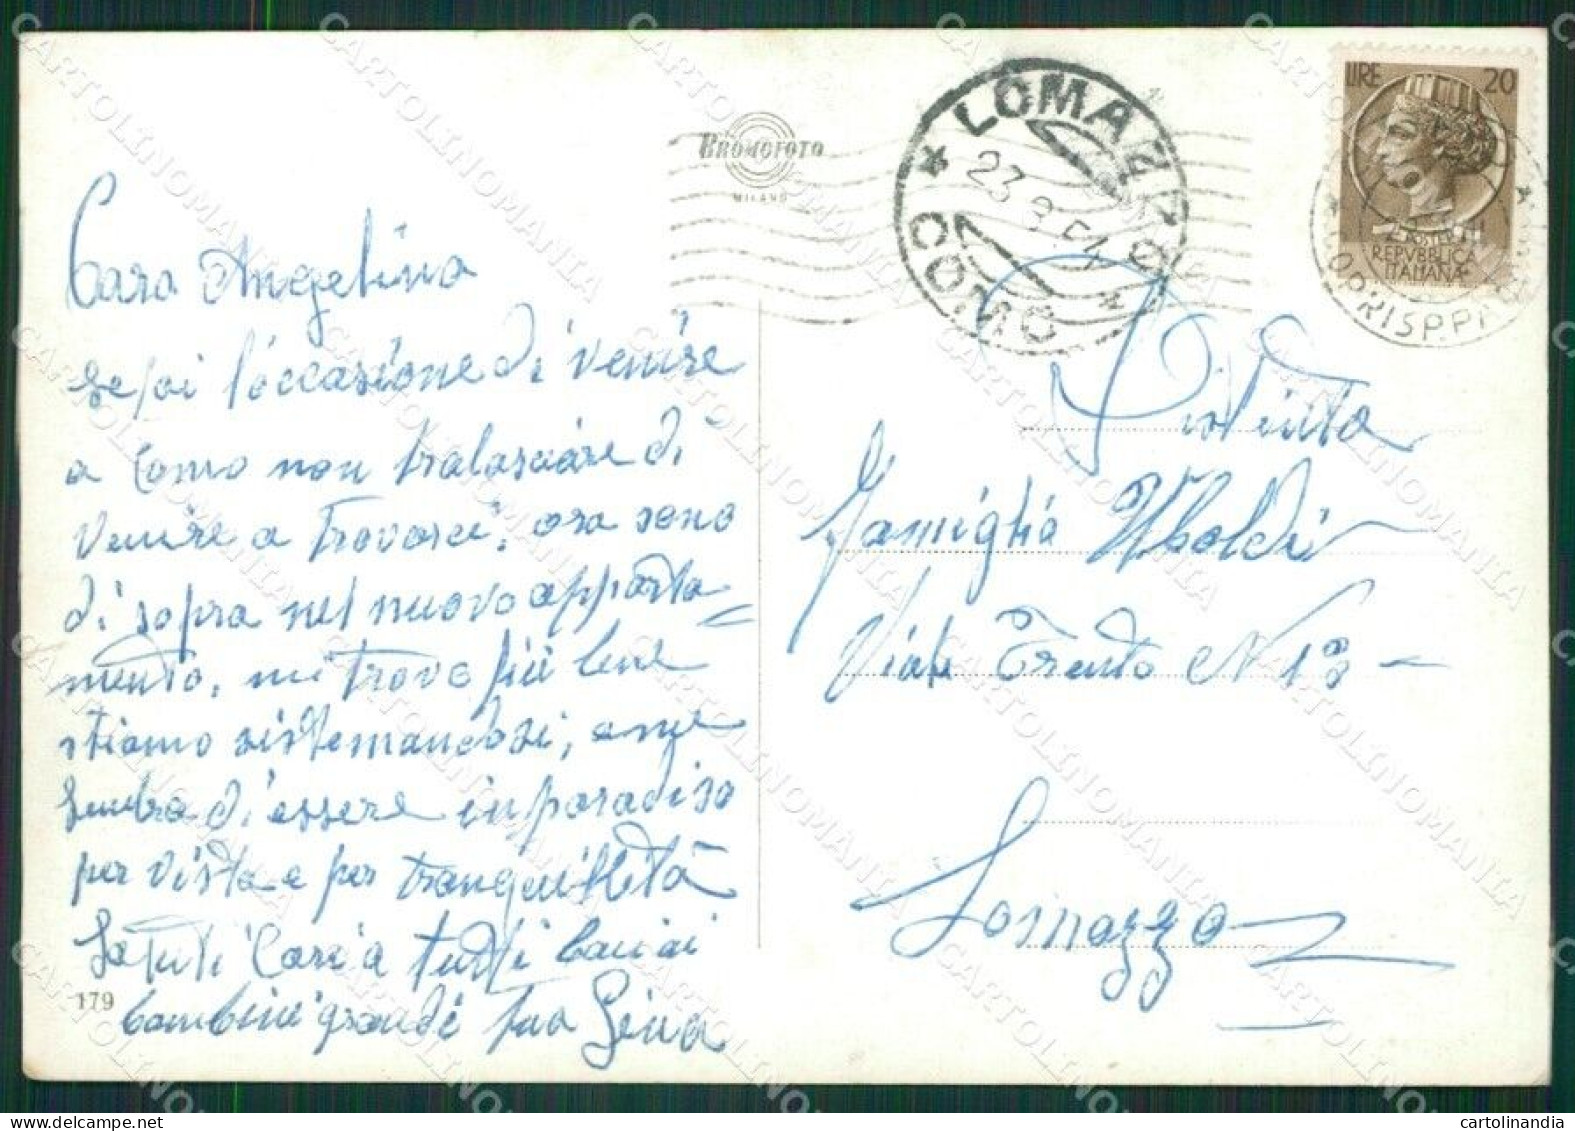 BROMOFOTO
MILANO
LOMAZZO
23.9.54
COMO
LIRE 20
POSTE
REPVBBLICA
ITALIANA
CORRISP.P.
Cara Angelina
se poi l'occasione di venire
a Como non tralasciare di
venire a trovarci, ora sono
di sopra nel nuovo apparta=
mento, mi trovo più bene
stiamo sistemandosi, a me
sembra d'essere in paradiso
per vista e per tranquillità
Saluti Cari a tutti baciai
bambini grandi tua Gina
179
Distinta
Famiglia Uboldi
Viale Trento N 18 -
Lomazzo
CARTOLINOMANIA
cartolinomania@gmail.com
cartolinandia